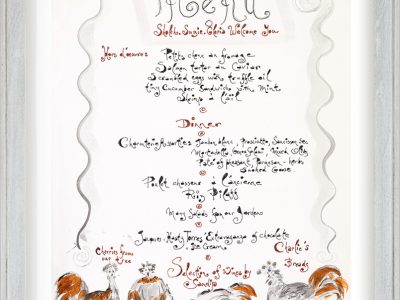 Menu
Shelah, Suzie, Gloria Welcome You
Hors d'oeuvres
Petits choux au fromage
Salmon tartar au Caviar
Scrambled eggs with truffle oil
tiny Cucumber Sandwichs with Mint
Shrimp à l'ail
Dinner
Charcuterie Assorties Jambon blanc, Prosciutto, Saucisson Sec
Mortadella, Mixed Olives
Pate of pheasant, Parmesan - herbs
Smoked Goose
Poulet chasseur à l'ancienne
Rice Pilaff
Many Salads from our Gardens
Jacques-Many Torres Extravaganza of chocolate
Ice Cream
Cherries from our tree
Charlie's Breads
Selection of Wines by